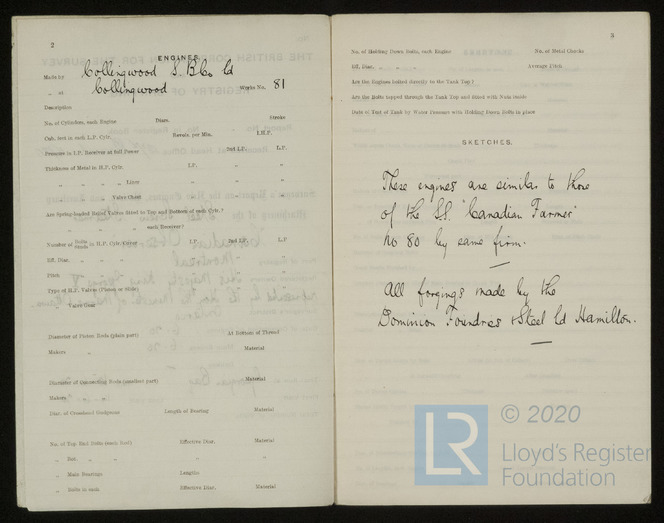 2
ENGINES.
Made by Collingwood S. B. Co Ld
„ at Collingwood Works No. 81
Description
No. of Cylinders, each Engine Diars. Stroke
Cub. feet in each L.P. Cylr. Revols. per Min. I.H.P.
Pressure in I.P. Receiver at full Power 2nd I.P. L.P.
Thickness of Metal in H.P. Cylr. I.P. „ „
„ „ „ Liner „ „ „
„ „ Valve Chest „ „ „
Are Spring-loaded Relief Valves fitted to Top and Bottom of each Cylr.?
„ „ „ each Receiver?
Number of Bolts Studs in H.P. Cylr. Cover I.P. 2nd I.P. L.P.
Eff. Diar. „ „ „ „
Pitch „ „ „
Type of H.P. Valves (Piston or Slide)
„ Valve Gear
Diameter of Piston Rods (plain part) At Bottom of Thread
Makers Material
Diameter of Connecting Rods (smallest part) Material
Makers
Diar. of Crosshead Gudgeons Length of Bearing Material
No. of Top End Bolts (each Rod) Effective Diar. Material
„ Bot. „ „ „ „
„ Main Bearings Lengths
„ Bolts in each Effective Diar. Material
3
No. of Holding Down Bolts, each Engine No. of Metal Chocks
Eff. Diar. „ „ „ Average Pitch
Are the Engines bolted directly to the Tank Top?
Are the Bolts tapped through the Tank Top and fitted with Nuts inside
Date of Test of Tank by Water Pressure with Holding Down Bolts in place
SKETCHES.
These engines are similar to those
of the S.S. "Canadian Farmer"
No 80 by same firm.
All forgings made by the
Dominion Foundries & Steel Ld Hamilton.
LR
© 2020
Lloyd's Register
Foundation